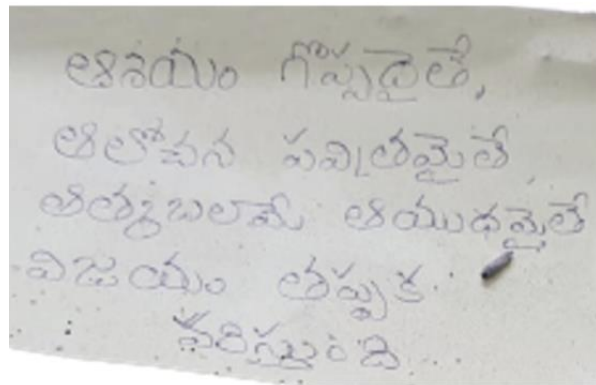 ఆశయం గొప్పదైతే,
ఆలోచన పవిత్రమైతే,
ఆత్మబలమే ఆయుధమైతే
విజయం తప్పక
వరిస్తుంది